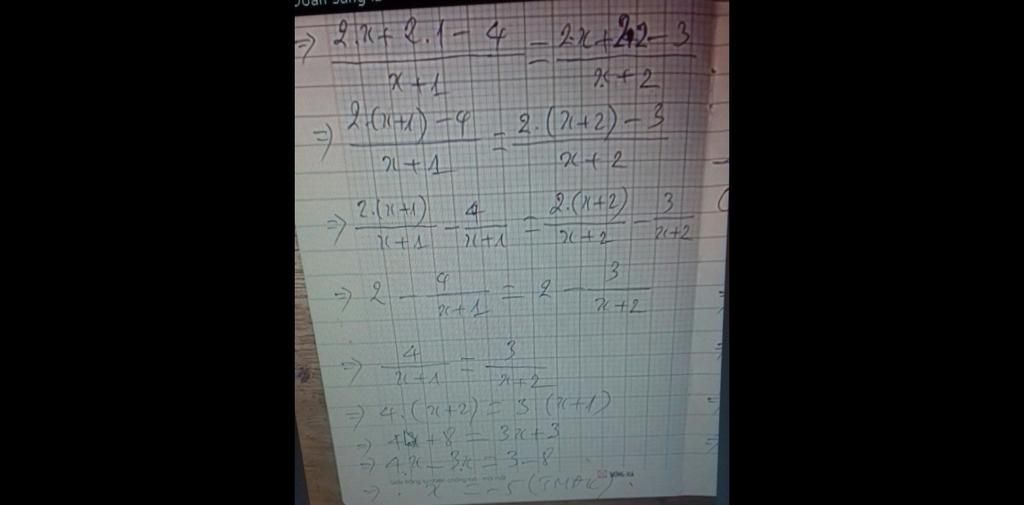 => (2.x + 2.1 - 4)/(x+1) = (2.x + 2.2 - 3)/(x+2)
=> (2.(x+1) - 4)/(x+1) = (2.(x+2) - 3)/(x+2)
=> (2.(x+1))/(x+1) - 4/(x+1) = (2.(x+2))/(x+2) - 3/(x+2)
=> 2 - 4/(x+1) = 2 - 3/(x+2)
=> 4/(x+1) = 3/(x+2)
=> 4.(x+2) = 3(x+1)
=> 4x + 8 = 3x + 3
=> 4x - 3x = 3 - 8
=> x = -5 (TMĐK)